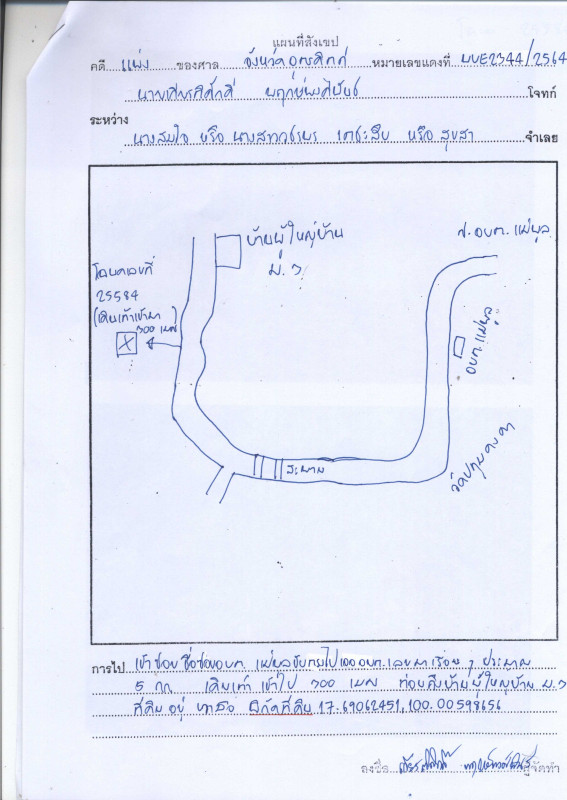 แผนที่สังเขป
คดี แพ่ง ของศาล จังหวัดอุตรดิตถ์ หมายเลขแดงที่ ผบE2344/2564
โจทก์
ระหว่าง
นางสมใจ หรือ นางสาว หรือ สุขสา จำเลย
บ้านผู้ใหญ่บ้าน
ม. ๖
ซ. อบต. แม่พูล
โฉนดเลขที่
25584
(เดินเท้าเข้ามา
300 เมตร)
X
อบต. แม่พูล
สะพาน
การไป เข้าซอย ชื่อซอยอบต. แม่พูลขับตรงไป อบต. เลยมาเรื่อย ๆ ประมาณ
5 กก เดินเท้า เข้าไป 300 เมตร ก่อนถึงบ้านผู้ใหญ่บ้าน ม. ๖
ที่ดิน อยู่ พิกัดที่ดิน 17.69062451, 100.00598656
ลงชื่อ ผู้จัดทำ